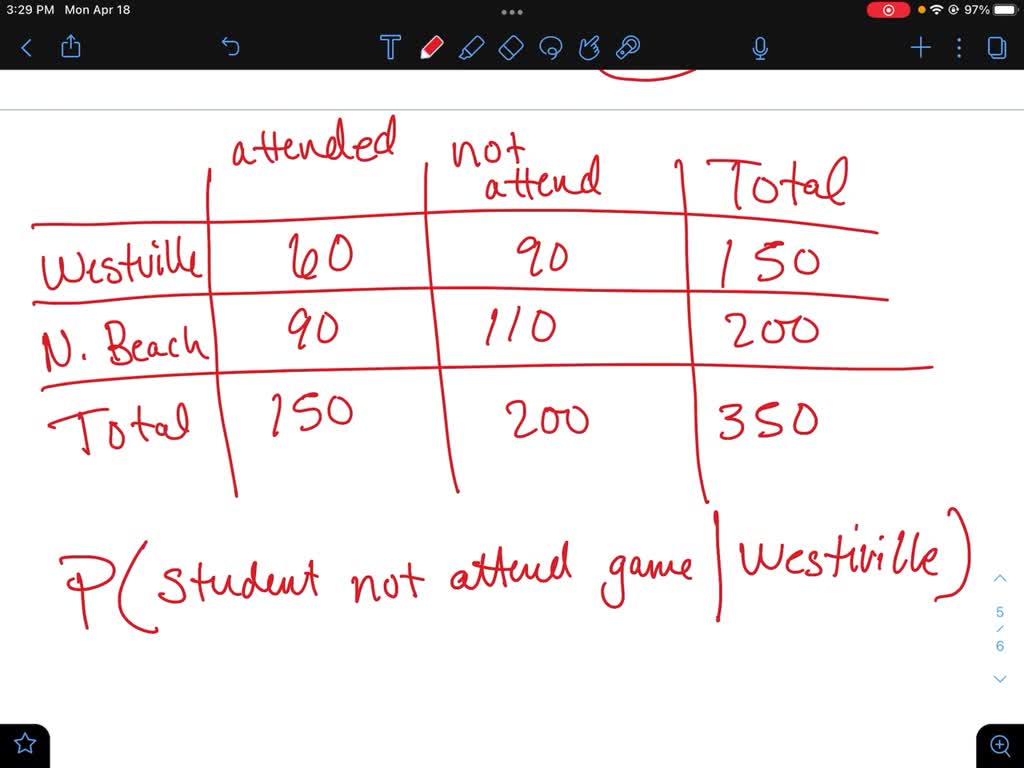 3:29 PM Mon Apr 18
97%
T
attended not attend Total
Westville 60 90 150
N. Beach 90 110 200
Total 150 200 350
P(student not attend game | Westiville)
5
/
6